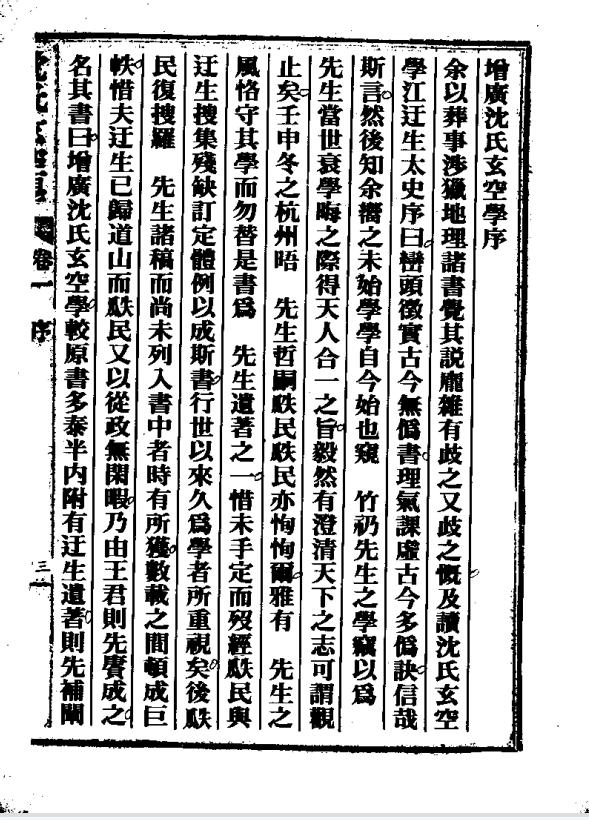 增廣沈氏玄空學序
余以葬事涉獵地理諸書覺其説龐雜有歧之又歧之慨及讀沈氏玄空
學江迂生太史序曰巒頭徵實古今無僞書理氣課虛古今多僞訣信哉
斯言然後知余嚮之未始學學自今始也窺 竹礽先生之學竊以爲
先生當世衰學晦之際得天人合一之旨毅然有澄清天下之志可謂觀
止矣壬申冬之杭州晤 先生哲嗣瓞民瓞民亦恂恂爾雅有 先生之
風恪守其學而勿替是書爲 先生遺著之一惜未手定而歿經瓞民與
迂生搜集殘缺訂定體例以成斯書行世以來久爲學者所重視矣後瓞
民復搜羅 先生諸稿而尚未列入書中者時有所獲數載之間頓成巨
帙惜夫迂生已歸道山而瓞民又以從政無閑暇乃由王君則先賡成之
名其書曰增廣沈氏玄空學較原書多泰半内附有迂生遺著則先補闡
卷一 序
三